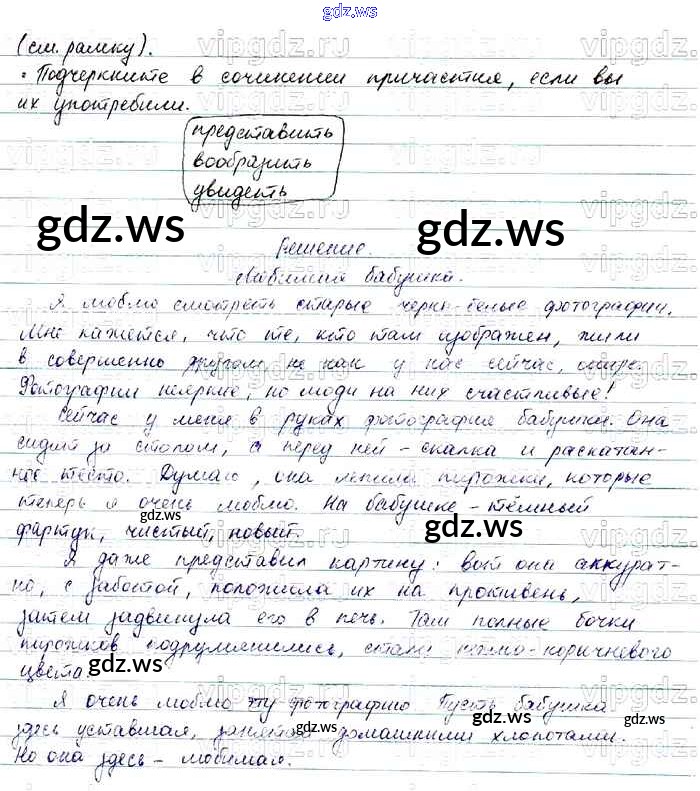 gdz.ws
(см. рамку).
• Подчеркните в сочинении причастия, если вы
их употребили.
представить
вообразить
увидеть
gdz.ws gdz.ws
Решение.
Любимая бабушка.
Я люблю смотреть старые черно-белые фотографии.
Мне кажется, что те, кто там изображен, жили
в совершенно другом, не как у нас сейчас, мире.
Фотографии неяркие, но люди на них счастливые!
Сейчас у меня в руках фотография бабушки. Она
сидит за столом, а перед ней - скалка и раскатан-
ное тесто. Думаю, она лепила пирожки, которые
теперь я очень люблю. На бабушке - тёмный
фартук, чистый, новый.
gdz.ws gdz.ws
Я даже представил картину: вот она аккурат-
но, с заботой, положила их на противень,
затем задвинула его в печь. Там полные бочки
пирожков подрумянились, стали нежно-коричневого
цвета.
gdz.ws gdz.ws
Я очень люблю эту фотографию. Пусть бабушка
здесь уставшая, занятая домашними хлопотами.
gdz.ws gdz.ws
Но она здесь - любимая.